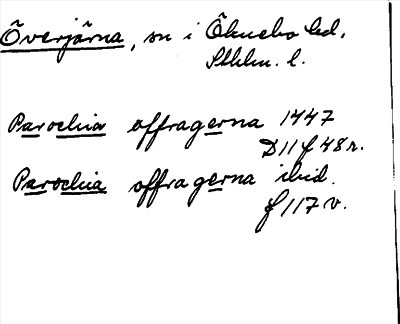 Överjärna, sn i Öknebo hd,
Sthlm. l.
Parochia offragerna 1447
D11 f 48 r.
Parochia offragerna ibid.
f 117 v.